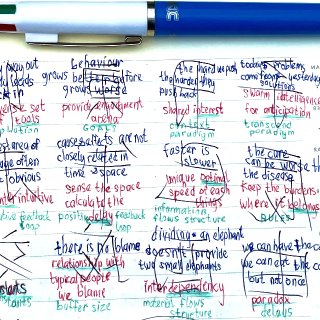 way out
behaviour
grows better before
grows worse
provide enjoyment
arena
GOALS
the harder we push
the harder they
push back
shared interest
context
paradigm
today's problems
come from yesterday
solutions
swarm intelligence
for anticipation
transcend
paradigm
set
tools
often
obvious
intuitive
feedback
loop
cause/effects are not
closely related in
time space
sense the space
calculate the
positive delay feedback
loop
faster is
slower
unique optimal
speed of each
things
information
flows structure
the cure
can be worse
the disease
keep the burdens
where it belongs
RULES
there is no blame
relationship with
typical people
we blame
buffer size
dividing an elephant
doesn't provide
two small elephants
interdependency
material flows
structure
we can have the
we can eat the
but not once
paradox
delays